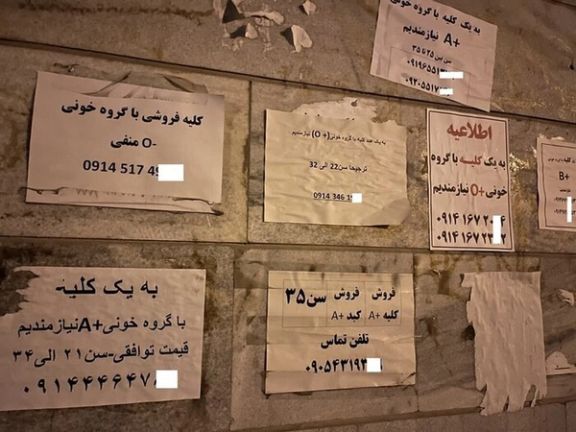 به یک کلیه با گروه خونی
A+ نیازمندیم
سن بین ۲۵ تا ۳۵
کلیه فروشی با گروه خونی
O- منفی
0914 517 4
به یک عدد کلیه با گروه خونی (O+) نیازمندیم
ترجیحا سن22 الی 32
0914 346 1
اطلاعیه
به یک کلیه با گروه
خونی O+ نیازمندیم
۰۹۱۴ ۱۶۷۲
۰۹۱۴ ۱۶۷۲
کلیه
B+
به یک کلیه
با گروه خونی A+ نیازمندیم
قیمت توافقی-سن ۲۱ الی ۳۴
۰۹۱۴۴۴۶۴۷
فروش کلیه A+
فروش کبد A+
سن ۳۵
تلفن تماس
۰۹۰۵۴۳۱۹۳